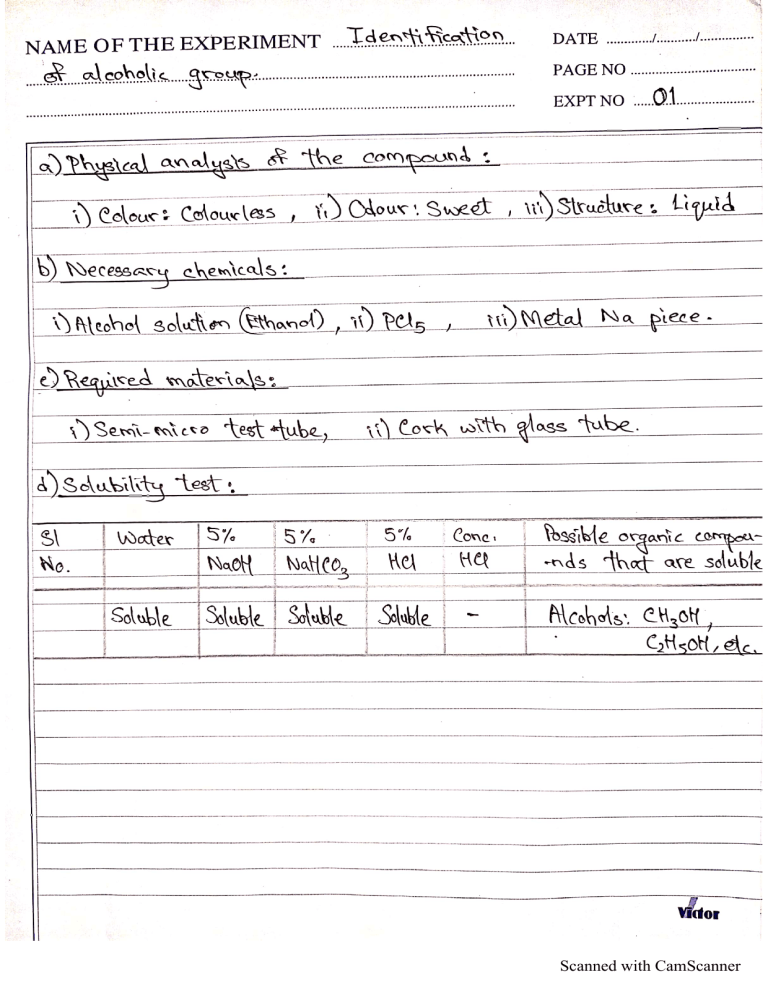 NAME OF THE EXPERIMENT Identification
of alcoholic group.
DATE ............/............/...............
PAGE NO
EXPT NO 01
a) Physical analysis of the compound :
i) Colour: Colourless , ii) Odour: Sweet , iii) Structure: Liquid
b) Necessary chemicals:
i) Alcohol solution (Ethanol) , ii) PCl5 , iii) Metal Na piece.
c) Required materials:
i) Semi-micro test tube, ii) Cork with glass tube.
d) Solubility test:
Sl Water 5% 5% 5% Conc. Possible organic compou-
No. NaOH NaHCO3 HCl HCl -nds that are soluble
Soluble Soluble Soluble Soluble - Alcohols: CH3OH,
C2H5OH, etc.
Victor
Scanned with CamScanner